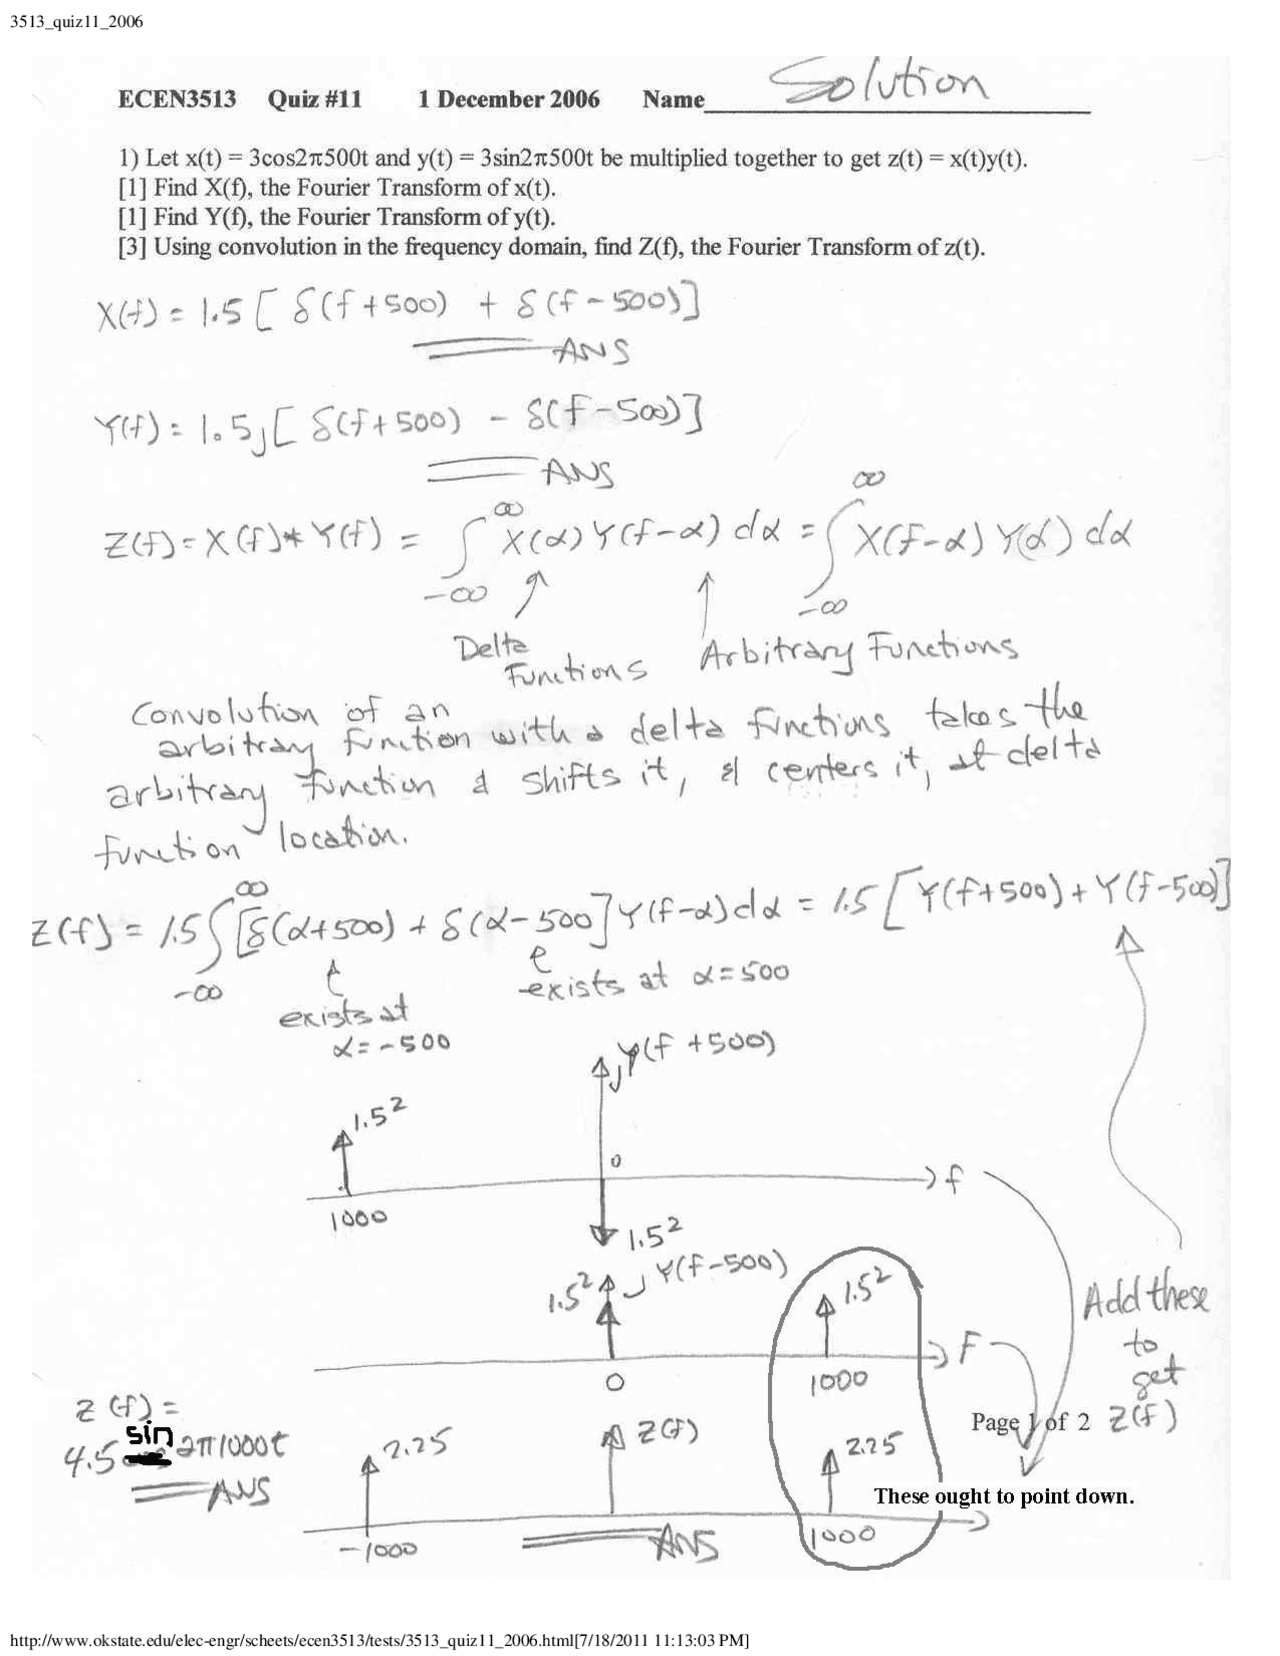 3513_quiz11_2006
Solution
ECEN3513 Quiz #11 1 December 2006 Name
1) Let x(t) = 3cos2π500t and y(t) = 3sin2π500t be multiplied together to get z(t) = x(t)y(t).
[1] Find X(f), the Fourier Transform of x(t).
[1] Find Y(f), the Fourier Transform of y(t).
[3] Using convolution in the frequency domain, find Z(f), the Fourier Transform of z(t).
X(f) = 1.5 [ δ(f+500) + δ(f-500)]
ANS
Y(f) = 1.5j[ δ(f+500) - δ(f-500)]
ANS
Z(f) = X(f)*Y(f) = ∫ X(α)Y(f-α) dα = ∫ X(f-α) Y(α) dα
∞ ∞
-∞ -∞
Delta Functions Arbitrary Functions
Convolution of an
arbitray function with a delta functions takes the
arbitrary function & shifts it, & centers it, at delta
function location.
Z(f) = 1.5 ∫ [δ(α+500) + δ(α-500] Y(f-α)dα = 1.5 [Y(f+500) + Y(f-500)]
∞
-∞
exists at α=-500
exists at α=500
jY(f+500)
1.5²
0
f
1000
1.5²
jY(f-500)
1.5²
1.5²
Add these
to
get
Z(f)
F
0
1000
Page 1 of 2
Z(f) =
4.5 sin 2π1000t
ANS
2.25
Z(f)
2.25
These ought to point down.
-1000
ANS
1000
http://www.okstate.edu/elec-engr/scheets/ecen3513/tests/3513_quiz11_2006.html[7/18/2011 11:13:03 PM]